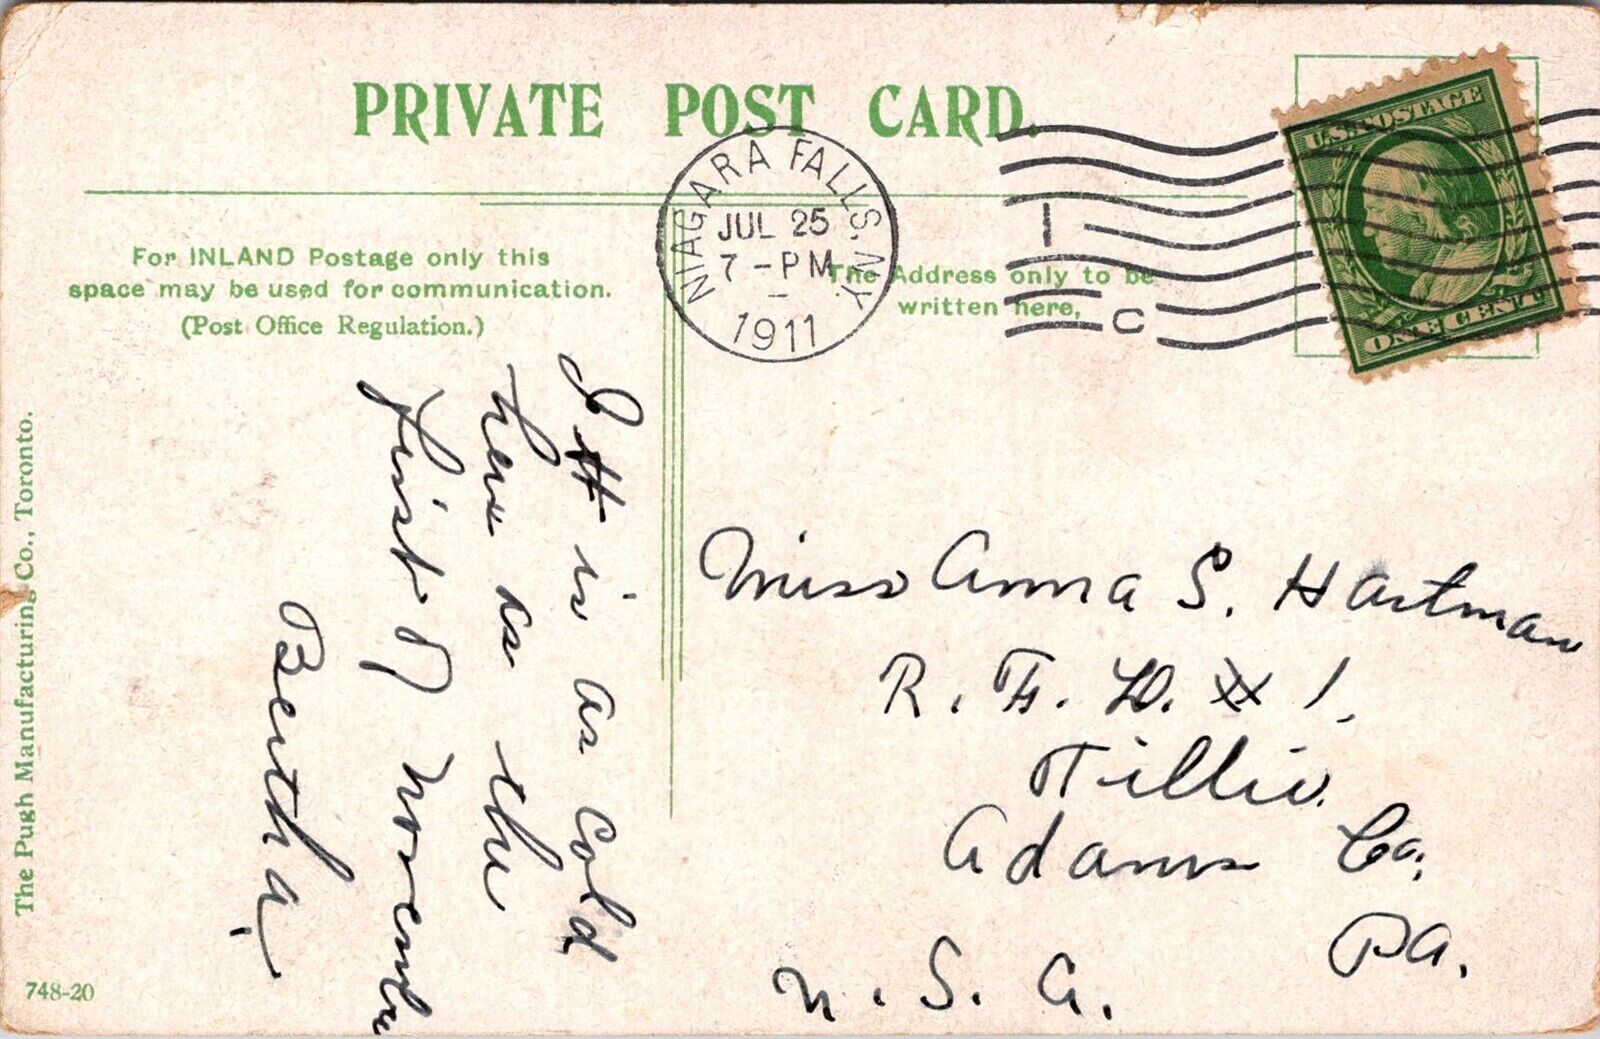 PRIVATE POST CARD.
NIAGARA FALLS, N.Y.
JUL 25
7-PM
1911
1
C
U.S. POSTAGE
ONE CENT
For INLAND Postage only this
space may be used for communication.
(Post Office Regulation.)
The Address only to be
written here,
It is as cold
here as the
first of November
Bertha.
Miss Anna S. Hartman
R. F. D. # 1.
Tillie.
Adams Co.
Pa.
U. S. A.
The Pugh Manufacturing Co., Toronto.
748-20